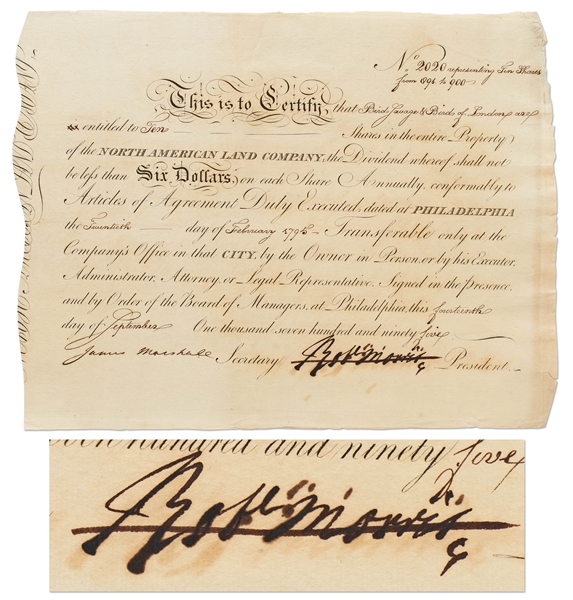 No. 2020 representing Ten Shares
from 891 to 900
This is to Certify, that Bird Savage & Bird of London are
entitled to Ten Shares in the entire Property
of the NORTH AMERICAN LAND COMPANY, the Dividend whereof shall not
be less than Six Dollars, on each Share Annually, conformably to
Articles of Agreement Duly Executed, dated at PHILADELPHIA
the Twentieth day of February 1795 Transferable only at the
Company's Office in that CITY, by the Owner in Person, or by his Executor,
Administrator, Attorney, or Legal Representative. Signed in the presence,
and by Order of the Board of Managers, at Philadelphia, this fourteenth
day of September One thousand seven hundred and ninety five
James Marshall Secretary Robt Morris President.
hundred and ninety five
Robt Morris